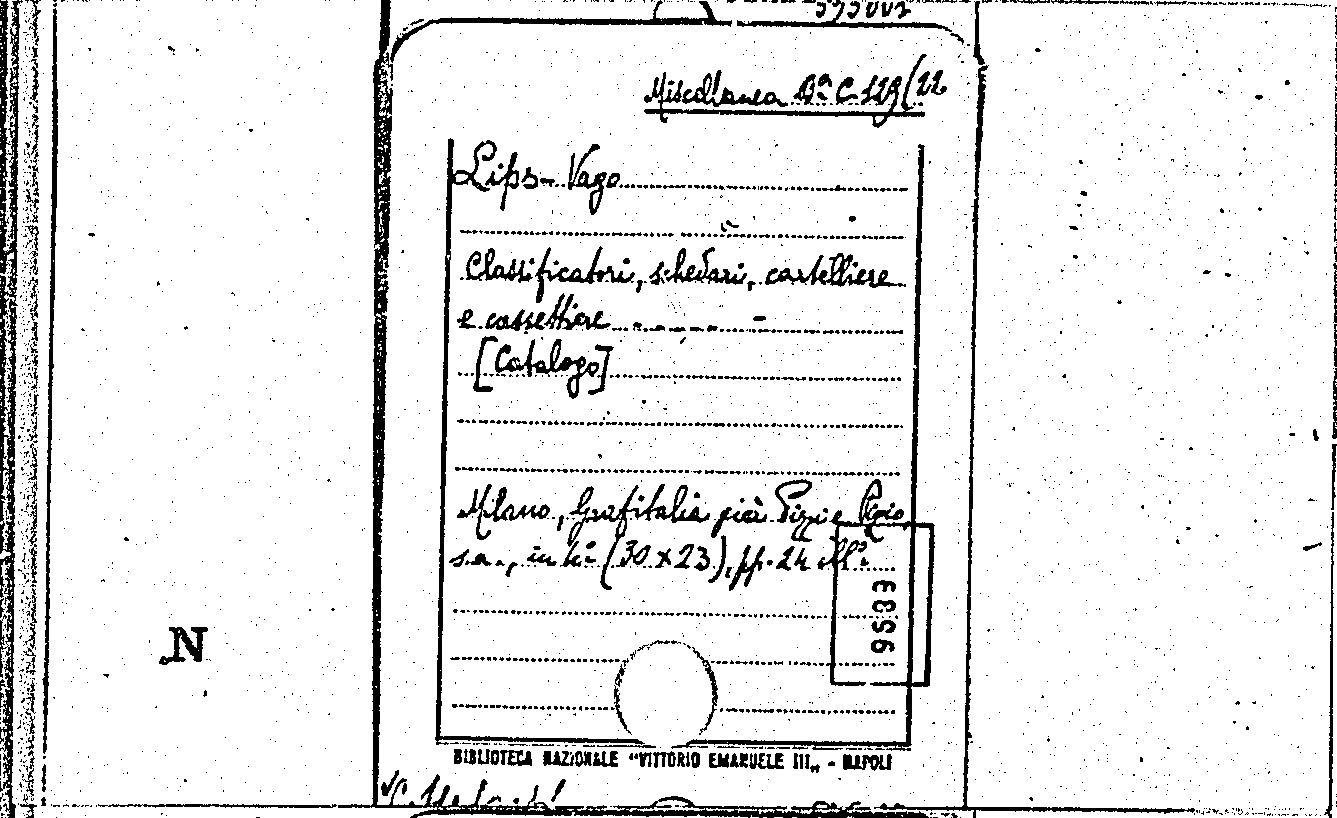 Miscellanea Bª C 129/22
Lips-Vago
Classificatori, schedari, cartelliere
e cassettiere ------ -
[Catalogo]
Milano, Grafitalia già Pizzi e Pizio,
s.a., in 4º (30x23), pp. 24 ill.
9583
N
BIBLIOTECA NAZIONALE "VITTORIO EMANUELE III„ - NAPOLI